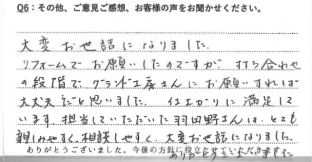 Q6：その他、ご意見ご感想、お客様の声をお聞かせください。
大変お世話になりました。
リフォームでお願いしたのですが、打ち合わせ
の段階で、グランド工房さんにお願いすれば
大丈夫だと思いました。仕上がりに満足して
います。担当していただいた羽田野さんは、とても
親しみやすく、相談しやすく、大変お世話になりました。
ありがとうございました。今後の方針に役立